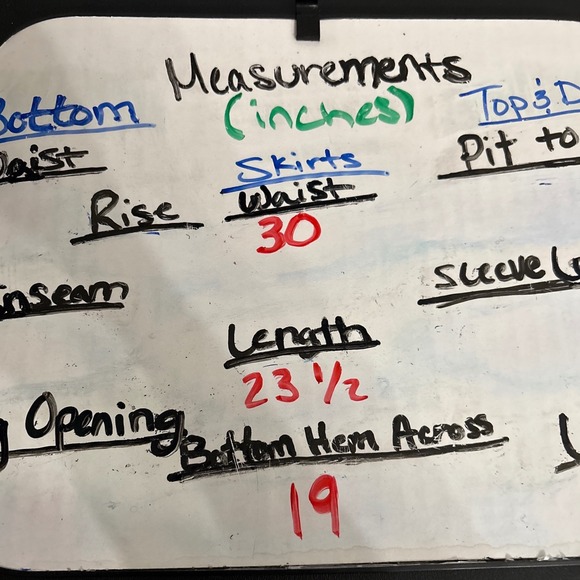 Measurements
(inches)
Bottom
Waist
Rise
Inseam
Opening
Skirts
Waist
30
Length
23 1/2
Bottom Hem Across
19
Top & D
Pit to
Sleeve